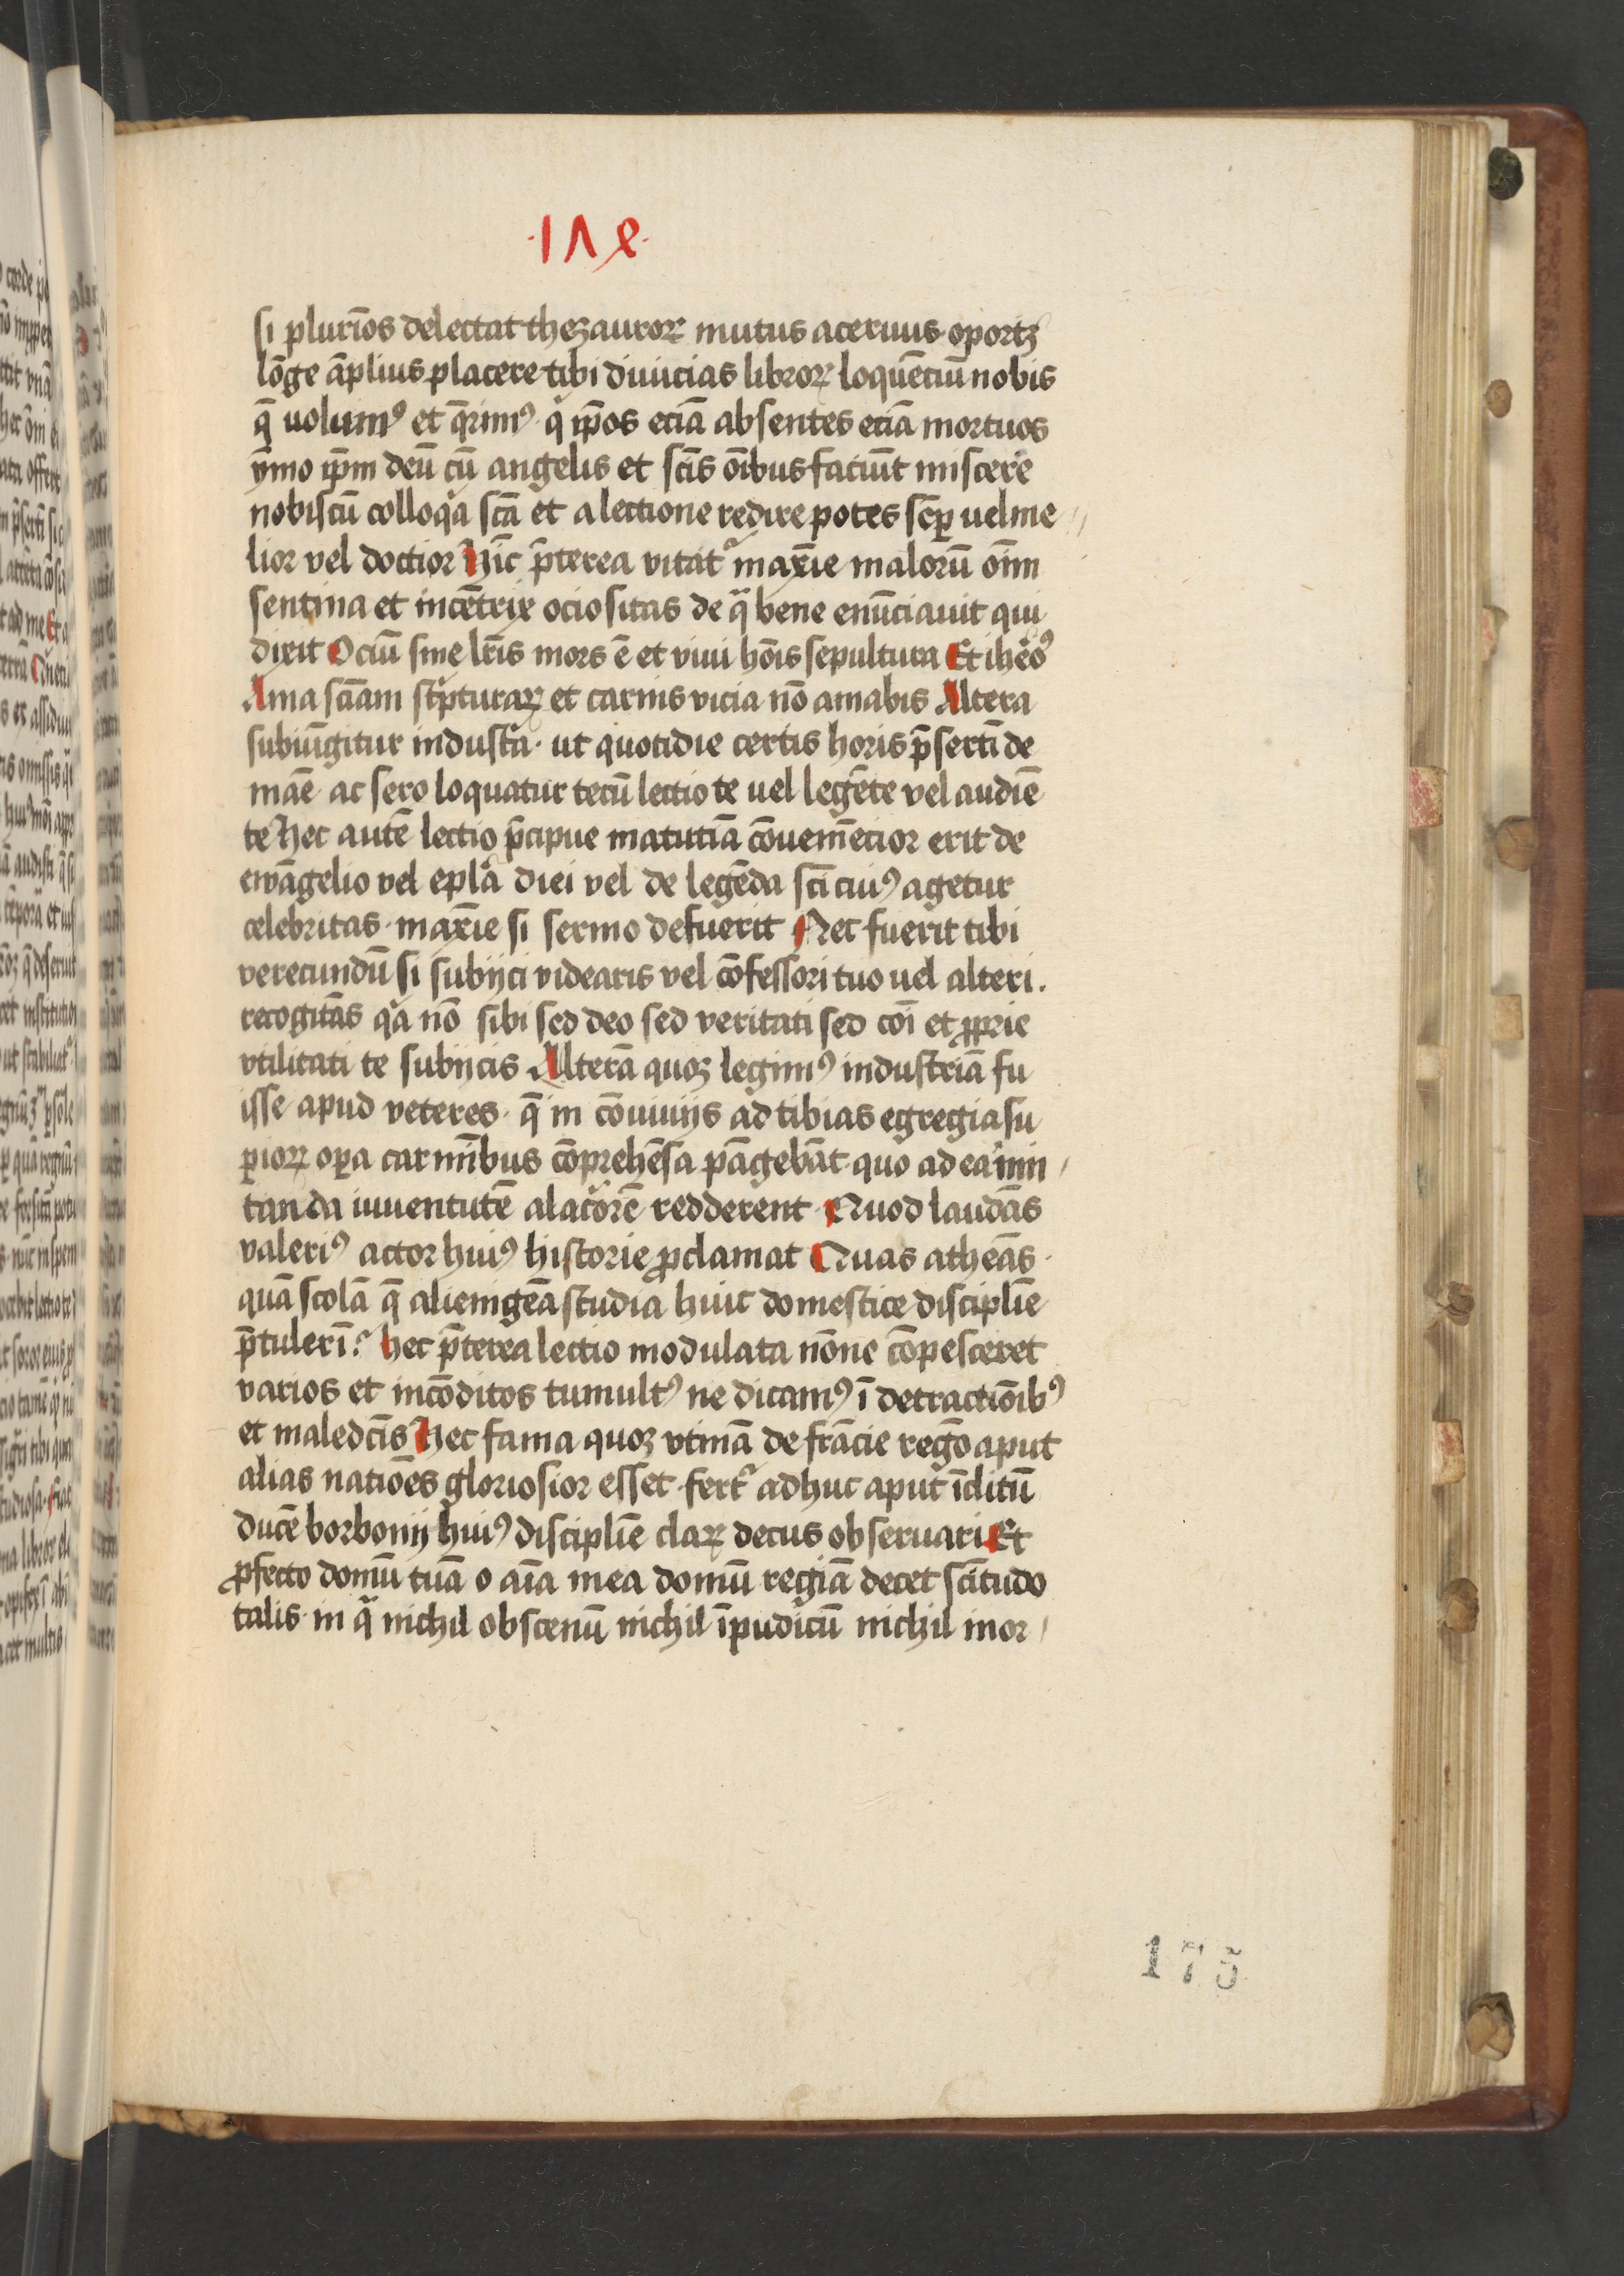 ·1Λ8·
si plurīos delectat thezauroꝝ mutus aceruus oportꝫ
lōge āplius placere tibi diuicias libroꝝ loquēciū nobis
q̄ uolumꝰ et q̄rimꝰ qͥ ip̄os eciā absentes eciā mortuos
ȳmo ip̄m deū cū angelis et sc̄is oībus faciūt miscere
nobiscū colloqͥa sc̄a et a lectione redire potes sēꝑ uel me
lior vel doctior Hīc p̄terea vitatͬ maxīe malorū oīm
sentina et incētrix ociositas de qͣ bene enūciauit qui
dixit Ociū sine lr̄is mors ē et viui hoīs sepultura Et iheōꝰ
Ama sciam scͥpturaꝝ et carnis vicia nō amabis Altera
subiūgitur industͥa · ut quotidie certis horis p̄sertī de
māe ac sero loquatur tecū lectio te uel legēte vel audiē
te Hec autē lectio p̄cipue matutīa cōueniēcior erit de
ewāgelio vel epl̄a diei vel de legēda sc̄i cuiꝰ agetur
celebritas · maxīe si sermo defuerit Nec fuerit tibi
verecundū si subijci videaris vel cōfessori tuo uel alteri .
recogitās qͥa nō sibi sed deo sed veritati sed cōi et ꝓprie
vtilitati te subijcis Alterā quoꝫ legimꝰ industriā fu
isse apud veteres · q̄ in cōuiuijs ad tibias egregia su
ꝑioꝝ oꝑa carmībus cōprehēsa pāgebāt · quo ad ea īmi
tanda iuuentutē alacͥorē redderent · Quod laudās
valeriꝰ actor huiꝰ historie ꝓclamat Quas atheās ·
quā scolā q̄ alienigēa studia huic domestice disciplīe
p̄tulerī? hec p̄terea lectio modulata nōne cōpesceret
varios et incōditos tumultꝰ ne dicamꝰ ī detractiōibꝰ
et maledc̄is Hec fama quoꝫ vtinā de frācie regͦ aput
alias natiōes gloriosior esset · fertͬ adhuc aput īclitū
ducē borbonij huiꝰ disciplīe claꝝ decus obseruari Et
ꝓfecto domū tuā o aīa mea domū regiā decet sc̄itudo
talis · in qͣ nichil obscenū nichil īpudicū nichil inor
175